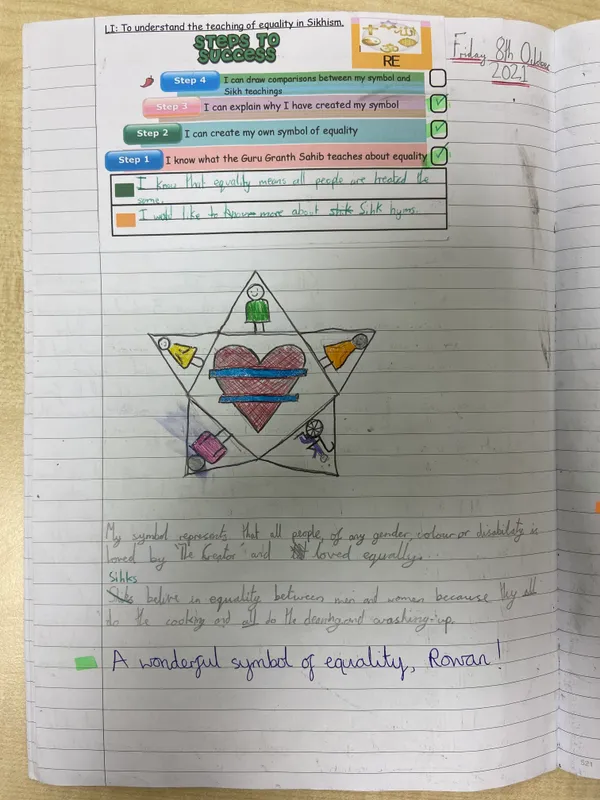 LI: To understand the teaching of equality in Sikhism.
STEPS TO
SUCCESS
RE
Friday 8th October
2021
Step 4 I can draw comparisons between my symbol and
Sikh teachings
Step 3 I can explain why I have created my symbol
Step 2 I can create my own symbol of equality
Step 1 I know what the Guru Granth Sahib teaches about equality
I know that equality means all people are treated the
same.
I would like to know more about Sihk hyms.
My symbol represents that all people, of any gender, colour or disability is
loved by "The Creator" and loved equally.
Sihks
belive in equality between men and women because they all
do the cooking and all do the cleaning and washing-up.
A wonderful symbol of equality, Rowan!